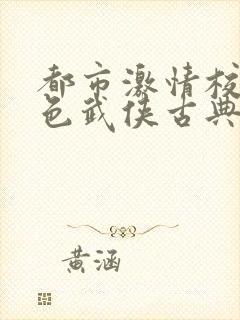 都市激情校
色武侠古典
黄涵